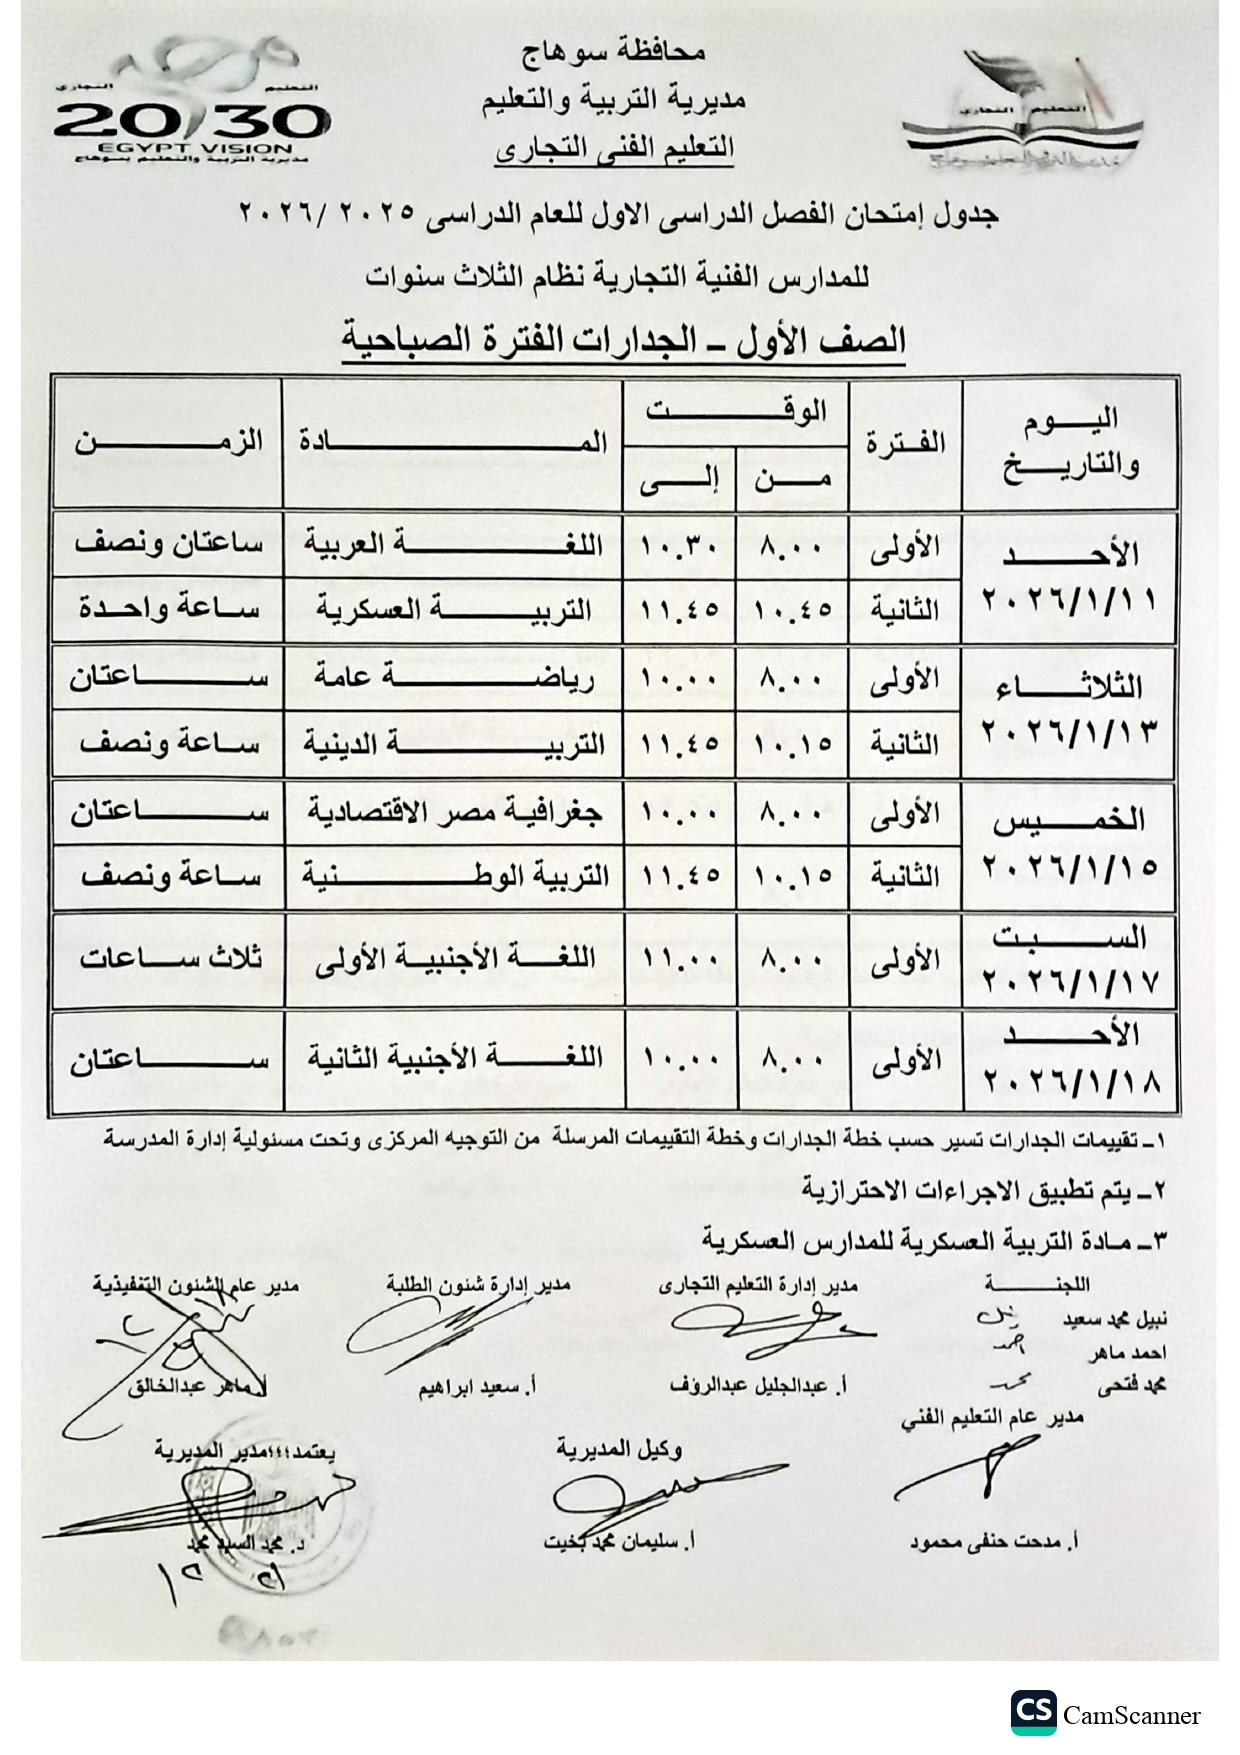 محافظة سوهاج
مديرية التربية والتعليم
التعليم الفنى التجارى
التعليم التجارى
20/30
EGYPT VISION
مديرية التربية والتعليم بسوهاج
التعليم التجارى
جدول إمتحان الفصل الدراسى الاول للعام الدراسى ٢٠٢٥ /٢٠٢٦
للمدارس الفنية التجارية نظام الثلاث سنوات
الصف الأول – الجدارات الفترة الصباحية
اليوم والتاريخ الفترة الوقت المادة الزمن
من إلى
الأحد ٢٠٢٦/١/١١ الأولى ٨.٠٠ ١٠.٣٠ اللغة العربية ساعتان ونصف
الثانية ١٠.٤٥ ١١.٤٥ التربية العسكرية ساعة واحدة
الثلاثاء ٢٠٢٦/١/١٣ الأولى ٨.٠٠ ١٠.٠٠ رياضة عامة ساعتان
الثانية ١٠.١٥ ١١.٤٥ التربية الدينية ساعة ونصف
الخميس ٢٠٢٦/١/١٥ الأولى ٨.٠٠ ١٠.٠٠ جغرافية مصر الاقتصادية ساعتان
الثانية ١٠.١٥ ١١.٤٥ التربية الوطنية ساعة ونصف
السبت ٢٠٢٦/١/١٧ الأولى ٨.٠٠ ١١.٠٠ اللغة الأجنبية الأولى ثلاث ساعات
الأحد ٢٠٢٦/١/١٨ الأولى ٨.٠٠ ١٠.٠٠ اللغة الأجنبية الثانية ساعتان
١- تقييمات الجدارات تسير حسب خطة الجدارات وخطة التقييمات المرسلة من التوجيه المركزى وتحت مسئولية إدارة المدرسة
٢- يتم تطبيق الاجراءات الاحترازية
٣- مادة التربية العسكرية للمدارس العسكرية
اللجنة مدير إدارة التعليم التجارى مدير إدارة شئون الطلبة مدير عام الشئون التنفيذية
نبيل محمد سعيد
احمد ماهر
محمد فتحى أ. عبدالجليل عبدالرؤف أ. سعيد ابراهيم أ. ماهر عبدالخالق
مدير عام التعليم الفني وكيل المديرية يعتمد؛؛؛مدير المديرية
أ. مدحت حنفى محمود أ. سليمان محمد بخيت د. محمد السيد محمد
CS CamScanner